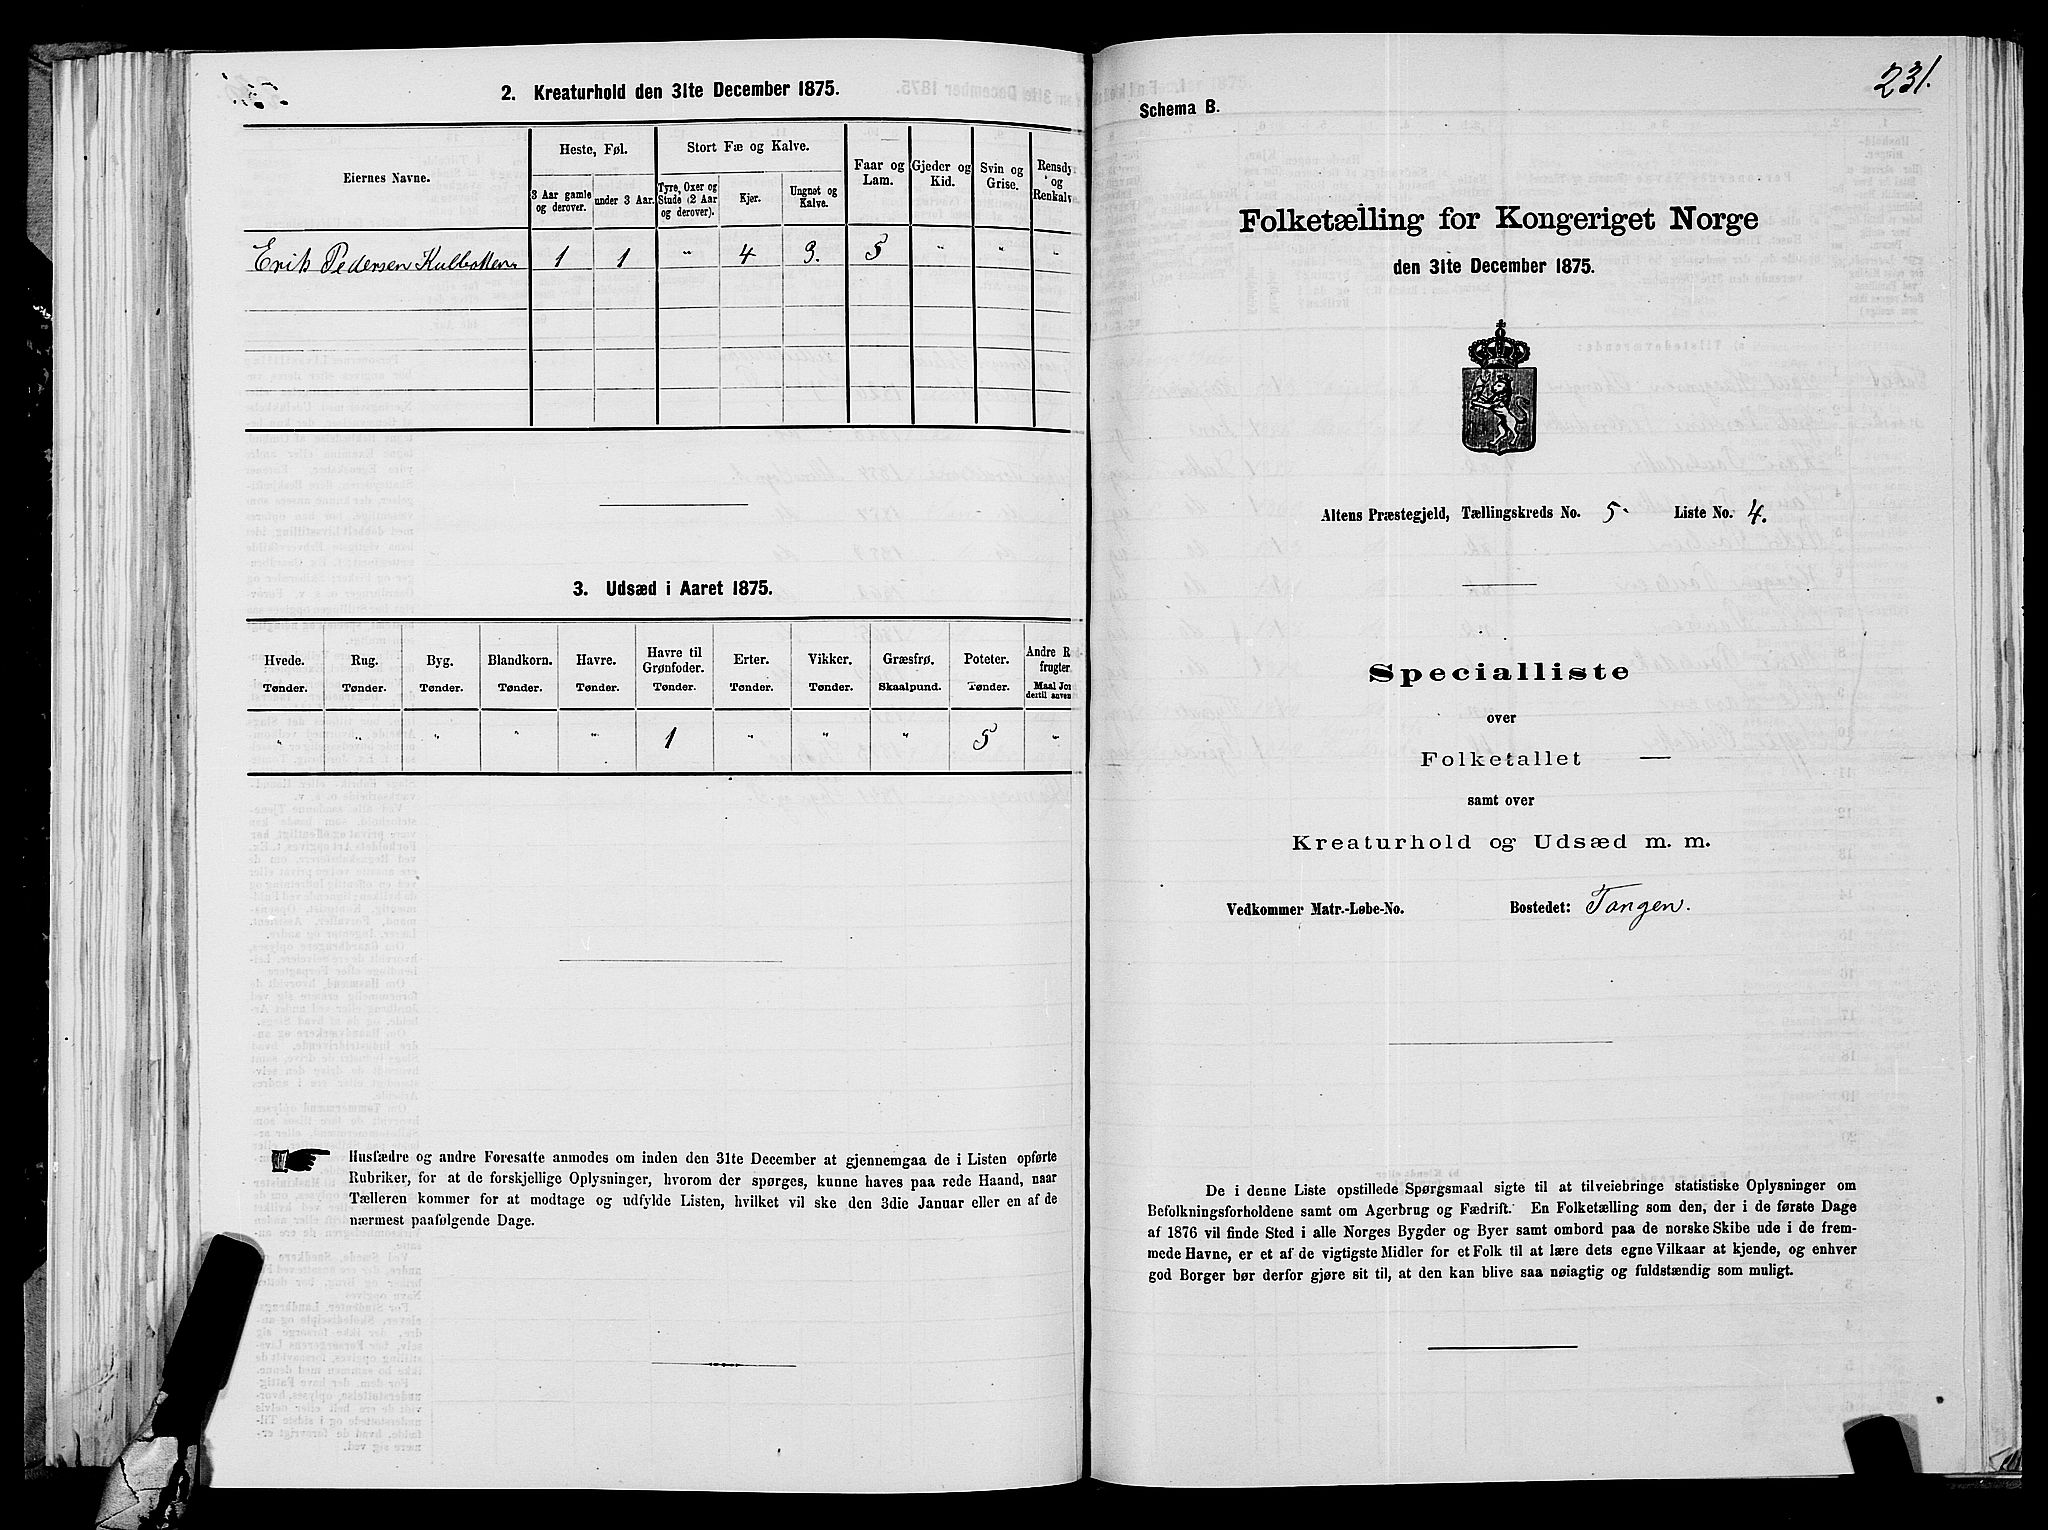 2. Kreaturhold den 31te December 1875.
Eiernes Navne.
Heste, Føl.
3 Aar gamle og derover.
under 3 Aar.
Stort Fæ og Kalve.
Tyre, Oxer og Stude (2 Aar og derover).
Kjer.
Ungnøt og Kalve.
Faar og Lam.
Gjeder og Kid.
Svin og Grise.
Rensdy
og
Renkalv
Erik Pedersen 1 1 " 4 3. 5 " " "
3. Udsæd i Aaret 1875.
Hvede. Rug. Byg. Blandkorn. Havre. Havre til Grønfoder. Erter. Vikker. Græsfrø. Poteter. Andre R
frugter
Tønder. Tønder. Tønder. Tønder. Tønder. Tønder. Tønder. Tønder. Skaalpund. Tønder. Maal Jor
dertil anven
" " " " " 1 " " " 5 "
Husfædre og andre Foresatte anmodes om inden den 31te December at gjennemgaa de i Listen opførte
Rubriker, for at de forskjellige Oplysninger, hvorom der spørges, kunne haves paa rede Haand, naar
Tælleren kommer for at modtage og udfylde Listen, hvilket vil ske den 3die Januar eller en af de
nærmest paafølgende Dage.
231.
Schema B.
Folketælling for Kongeriget Norge
den 31te December 1875.
Altens Præstegjeld, Tællingskreds No. 5. Liste No. 4.
Specialliste
over
Folketallet
samt over
Kreaturhold og Udsæd m. m.
Vedkommer Matr.-Løbe-No. Bostedet: Tangen.
De i denne Liste opstillede Spørgsmaal sigte til at tilveiebringe statistiske Oplysninger om
Befolkningsforholdene samt om Agerbrug og Fædrift. En Folketælling som den, der i de første Dage
af 1876 vil finde Sted i alle Norges Bygder og Byer samt ombord paa de norske Skibe ude i de frem-
mede Havne, er et af de vigtigste Midler for et Folk til at lære dets egne Vilkaar at kjende, og enhver
god Borger bør derfor gjøre sit til, at den kan blive saa nøiagtig og fuldstændig som muligt.